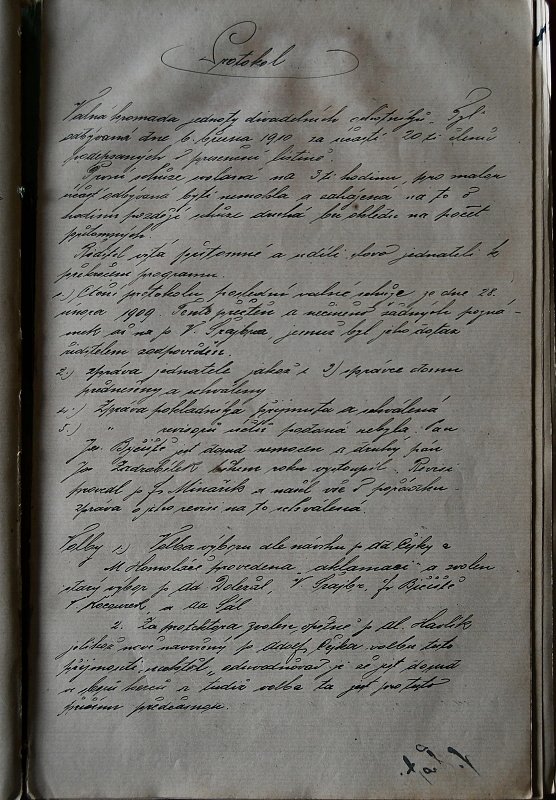 Protokol
Valná hromada jednoty divadelních ochotníků "Tyl"
odbývaná dne 6. března 1910 za účasti 20 ti členů
podepsaných v presenční listině.
První schůze svolaná na 3 ti hodinu pro malou
účast odbývaná býti nemohla a zahájena na to o
hodinu později schůze druhá bez ohledu na počet
přítomných.
Ředitel vítá přítomné a udílí slovo jednateli k
přečtení programu.
1.) Čtení protokolu poslední valné schůze ze dne 28.
února 1909. Tento přečten a nečiněno žádných pozná-
mek až na p. V. Šrajbra, jemuž byl jeho dotaz
ředitelem zodpověděn.
2.) zpráva jednatele jakož i 3) správce domu
předneseny a schváleny
4.) Zpráva pokladníka přijmuta a schválena
5.) " revisorů účtů podána nebyla. Pan
Jos. Bičiště jest doma nemocen a druhý pán
Jos. Zadrobílek během roku vystoupil. Revisi
provedl p. Fr. Minařík a našel vše v pořádku.
Zpráva o jeho revisi na to schválena.
Volby 1.) Volba výboru dle návrhu p. Ad. Čejky a
M. Homoláče provedena "aklamací" a zvolen
starý výbor p. Ad. Doležal, V. Šrajbr, Fr. Bičiště
F. Kocourek, a Ad. Šál
2. Za protektora zvolen opětně p. Al. Havlík
jelikož nově navržený p. Adolf Čejka volbu tuto
přijmouti nechtěl, odůvodňovav ji až
a tudíž volba ta jest pro tuto
předčasnou.